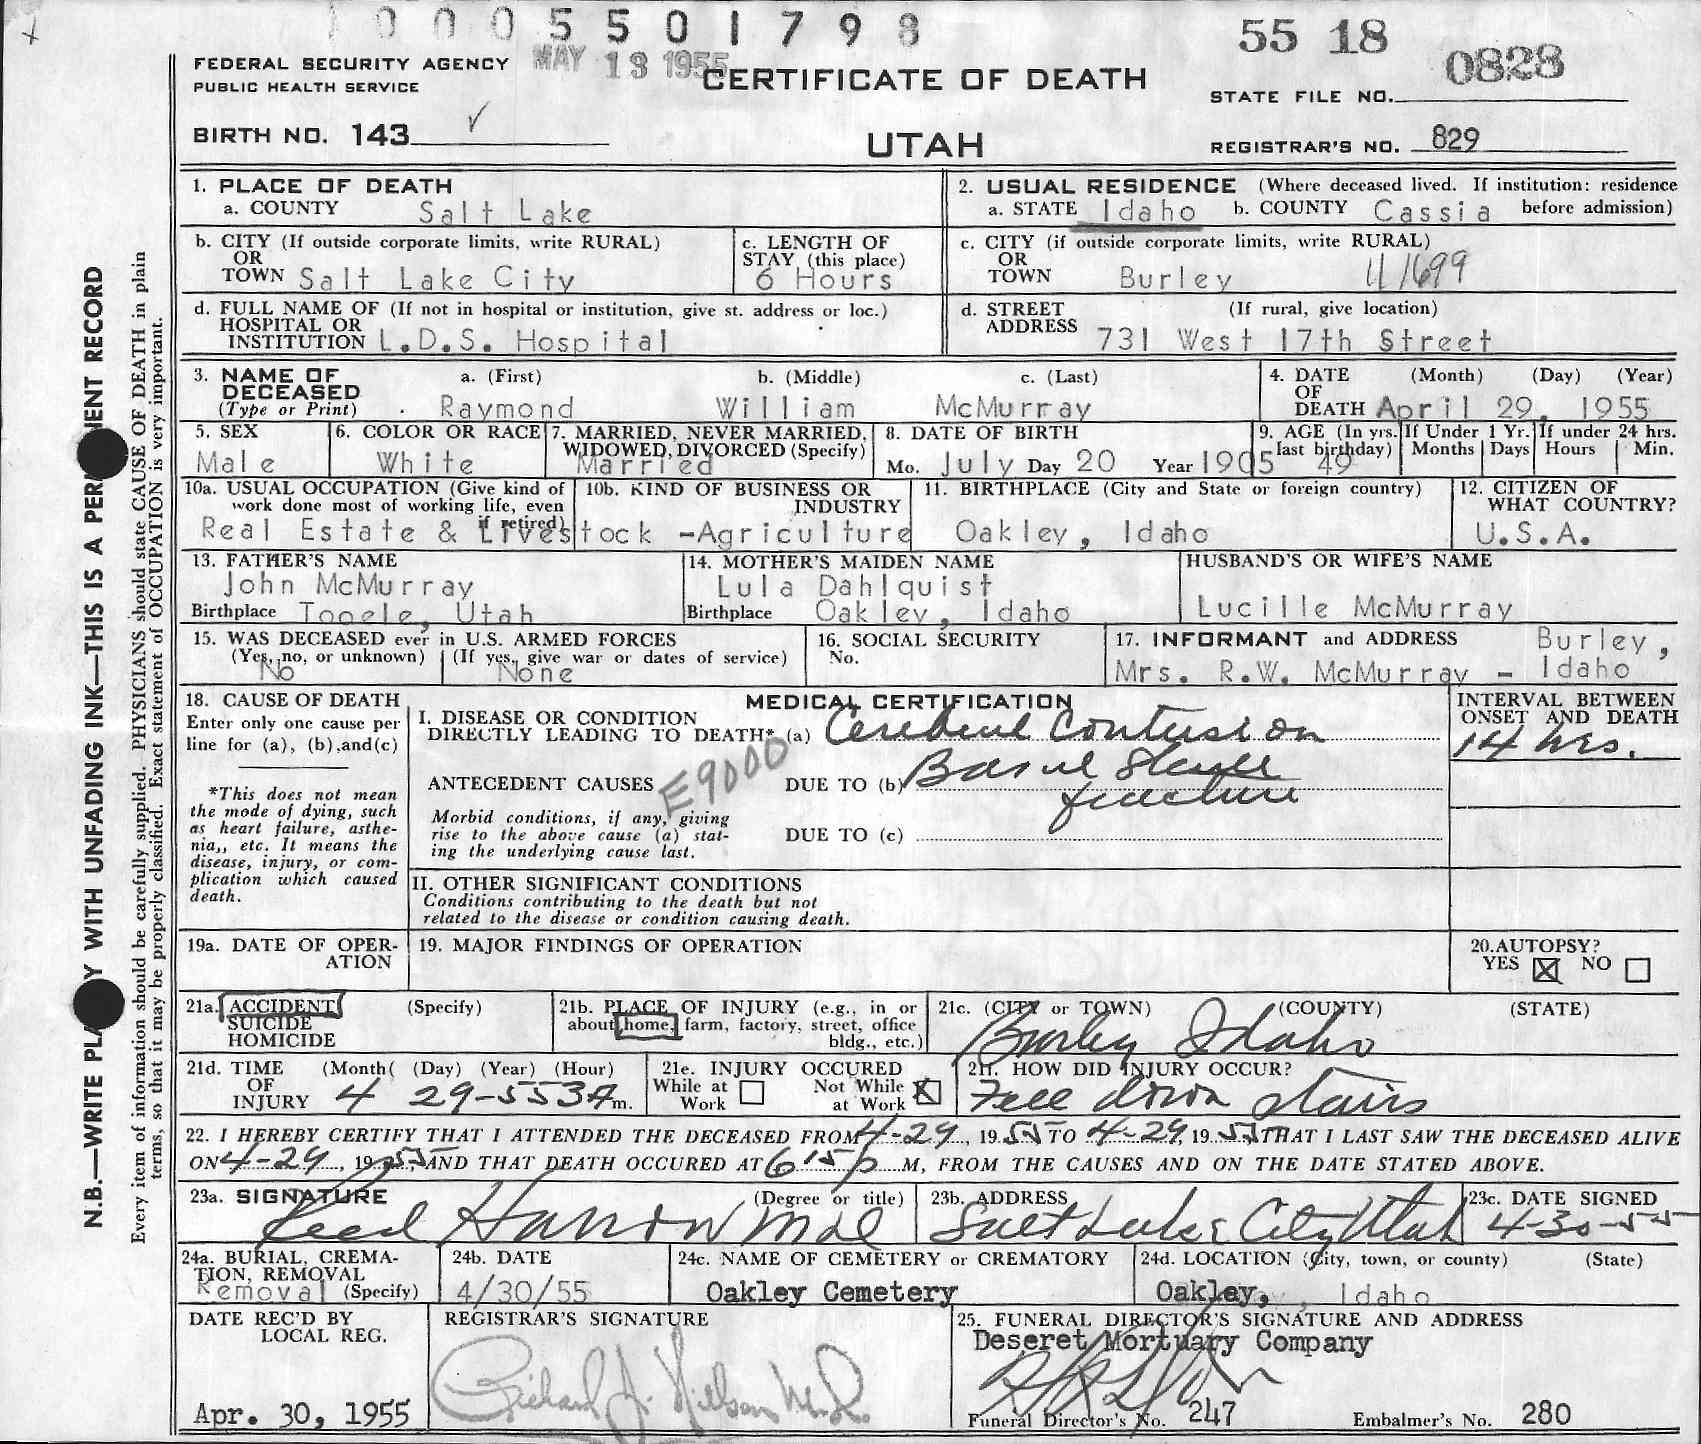 1 0 0 0 5 5 0 1 7 9 8
55 18
0828
FEDERAL SECURITY AGENCY
PUBLIC HEALTH SERVICE
MAY 13 1955
CERTIFICATE OF DEATH
STATE FILE NO.
BIRTH NO. 143
UTAH
REGISTRAR'S NO. 829
N.B.—WRITE PLA Y WITH UNFADING INK—THIS IS A PER ENT RECORD
Every item of information should be carefully supplied. PHYSICIANS should state CAUSE OF DEATH in plain
terms, so that it may be properly classified. Exact statement of OCCUPATION is very important.
1. PLACE OF DEATH
a. COUNTY Salt Lake
2. USUAL RESIDENCE (Where deceased lived. If institution: residence
a. STATE Idaho b. COUNTY Cassia before admission)
b. CITY (If outside corporate limits, write RURAL)
OR
TOWN Salt Lake City
c. LENGTH OF
STAY (this place)
6 Hours
c. CITY (if outside corporate limits, write RURAL)
OR
TOWN Burley
d. FULL NAME OF (If not in hospital or institution, give st. address or loc.)
HOSPITAL OR
INSTITUTION L.D.S. Hospital
d. STREET (If rural, give location)
ADDRESS 731 West 17th Street
3. NAME OF a. (First) b. (Middle) c. (Last)
DECEASED
(Type or Print) Raymond William McMurray
4. DATE (Month) (Day) (Year)
OF
DEATH April 29, 1955
5. SEX
Male
6. COLOR OR RACE
White
7. MARRIED, NEVER MARRIED,
WIDOWED, DIVORCED (Specify)
Married
8. DATE OF BIRTH
Mo. July Day 20 Year 1905
9. AGE (In yrs. last birthday) 49
If Under 1 Yr. Months Days
If under 24 hrs. Hours Min.
10a. USUAL OCCUPATION (Give kind of
work done most of working life, even
if retired)
Real Estate & Livestock -Agriculture
10b. KIND OF BUSINESS OR
INDUSTRY
11. BIRTHPLACE (City and State or foreign country)
Oakley, Idaho
12. CITIZEN OF
WHAT COUNTRY?
U.S.A.
13. FATHER'S NAME
John McMurray
Birthplace Tooele, Utah
14. MOTHER'S MAIDEN NAME
Lula Dahlquist
Birthplace Oakley, Idaho
HUSBAND'S OR WIFE'S NAME
Lucille McMurray
15. WAS DECEASED ever in U.S. ARMED FORCES
(Yes, no, or unknown) (If yes, give war or dates of service)
No None
16. SOCIAL SECURITY
No.
17. INFORMANT and ADDRESS Burley,
Mrs. R.W. McMurray - Idaho
18. CAUSE OF DEATH
Enter only one cause per
line for (a), (b), and (c)
*This does not mean
the mode of dying, such
as heart failure, asthe-
nia,, etc. It means the
disease, injury, or com-
plication which caused
death.
MEDICAL CERTIFICATION
I. DISEASE OR CONDITION
DIRECTLY LEADING TO DEATH* (a) Cerebral Contusion
E9000
ANTECEDENT CAUSES DUE TO (b) Basal Skull
fracture
Morbid conditions, if any, giving
rise to the above cause (a) stat-
ing the underlying cause last.
DUE TO (c)
INTERVAL BETWEEN
ONSET AND DEATH
14 hrs.
II. OTHER SIGNIFICANT CONDITIONS
Conditions contributing to the death but not
related to the disease or condition causing death.
19a. DATE OF OPER-
ATION
19. MAJOR FINDINGS OF OPERATION
20. AUTOPSY?
YES NO
21a. ACCIDENT (Specify)
SUICIDE
HOMICIDE
21b. PLACE OF INJURY (e.g., in or
about home, farm, factory, street, office
bldg., etc.)
21c. (CITY or TOWN) (COUNTY) (STATE)
Burley Idaho
21d. TIME (Month( (Day) (Year) (Hour)
OF
INJURY 4 29-55 3 A m.
21e. INJURY OCCURED
While at Work
Not While at Work
21f. HOW DID INJURY OCCUR?
Fell down stairs
22. I HEREBY CERTIFY THAT I ATTENDED THE DECEASED FROM 4-29, 1955 TO 4-29, 1955, THAT I LAST SAW THE DECEASED ALIVE
ON 4-29, 1955, AND THAT DEATH OCCURED AT 6 15 p M, FROM THE CAUSES AND ON THE DATE STATED ABOVE.
23a. SIGNATURE (Degree or title)
Reed Harrow M.D.
23b. ADDRESS
Salt Lake City, Utah
23c. DATE SIGNED
4-30-55
24a. BURIAL, CREMA-
TION, REMOVAL
Removal (Specify)
24b. DATE
4/30/55
24c. NAME OF CEMETERY or CREMATORY
Oakley Cemetery
24d. LOCATION (City, town, or county) (State)
Oakley, Idaho
DATE REC'D BY
LOCAL REG.
Apr. 30, 1955
REGISTRAR'S SIGNATURE
Richard J. Nillson M.D.
25. FUNERAL DIRECTOR'S SIGNATURE AND ADDRESS
Deseret Mortuary Company
Funeral Director's No. 247 Embalmer's No. 280